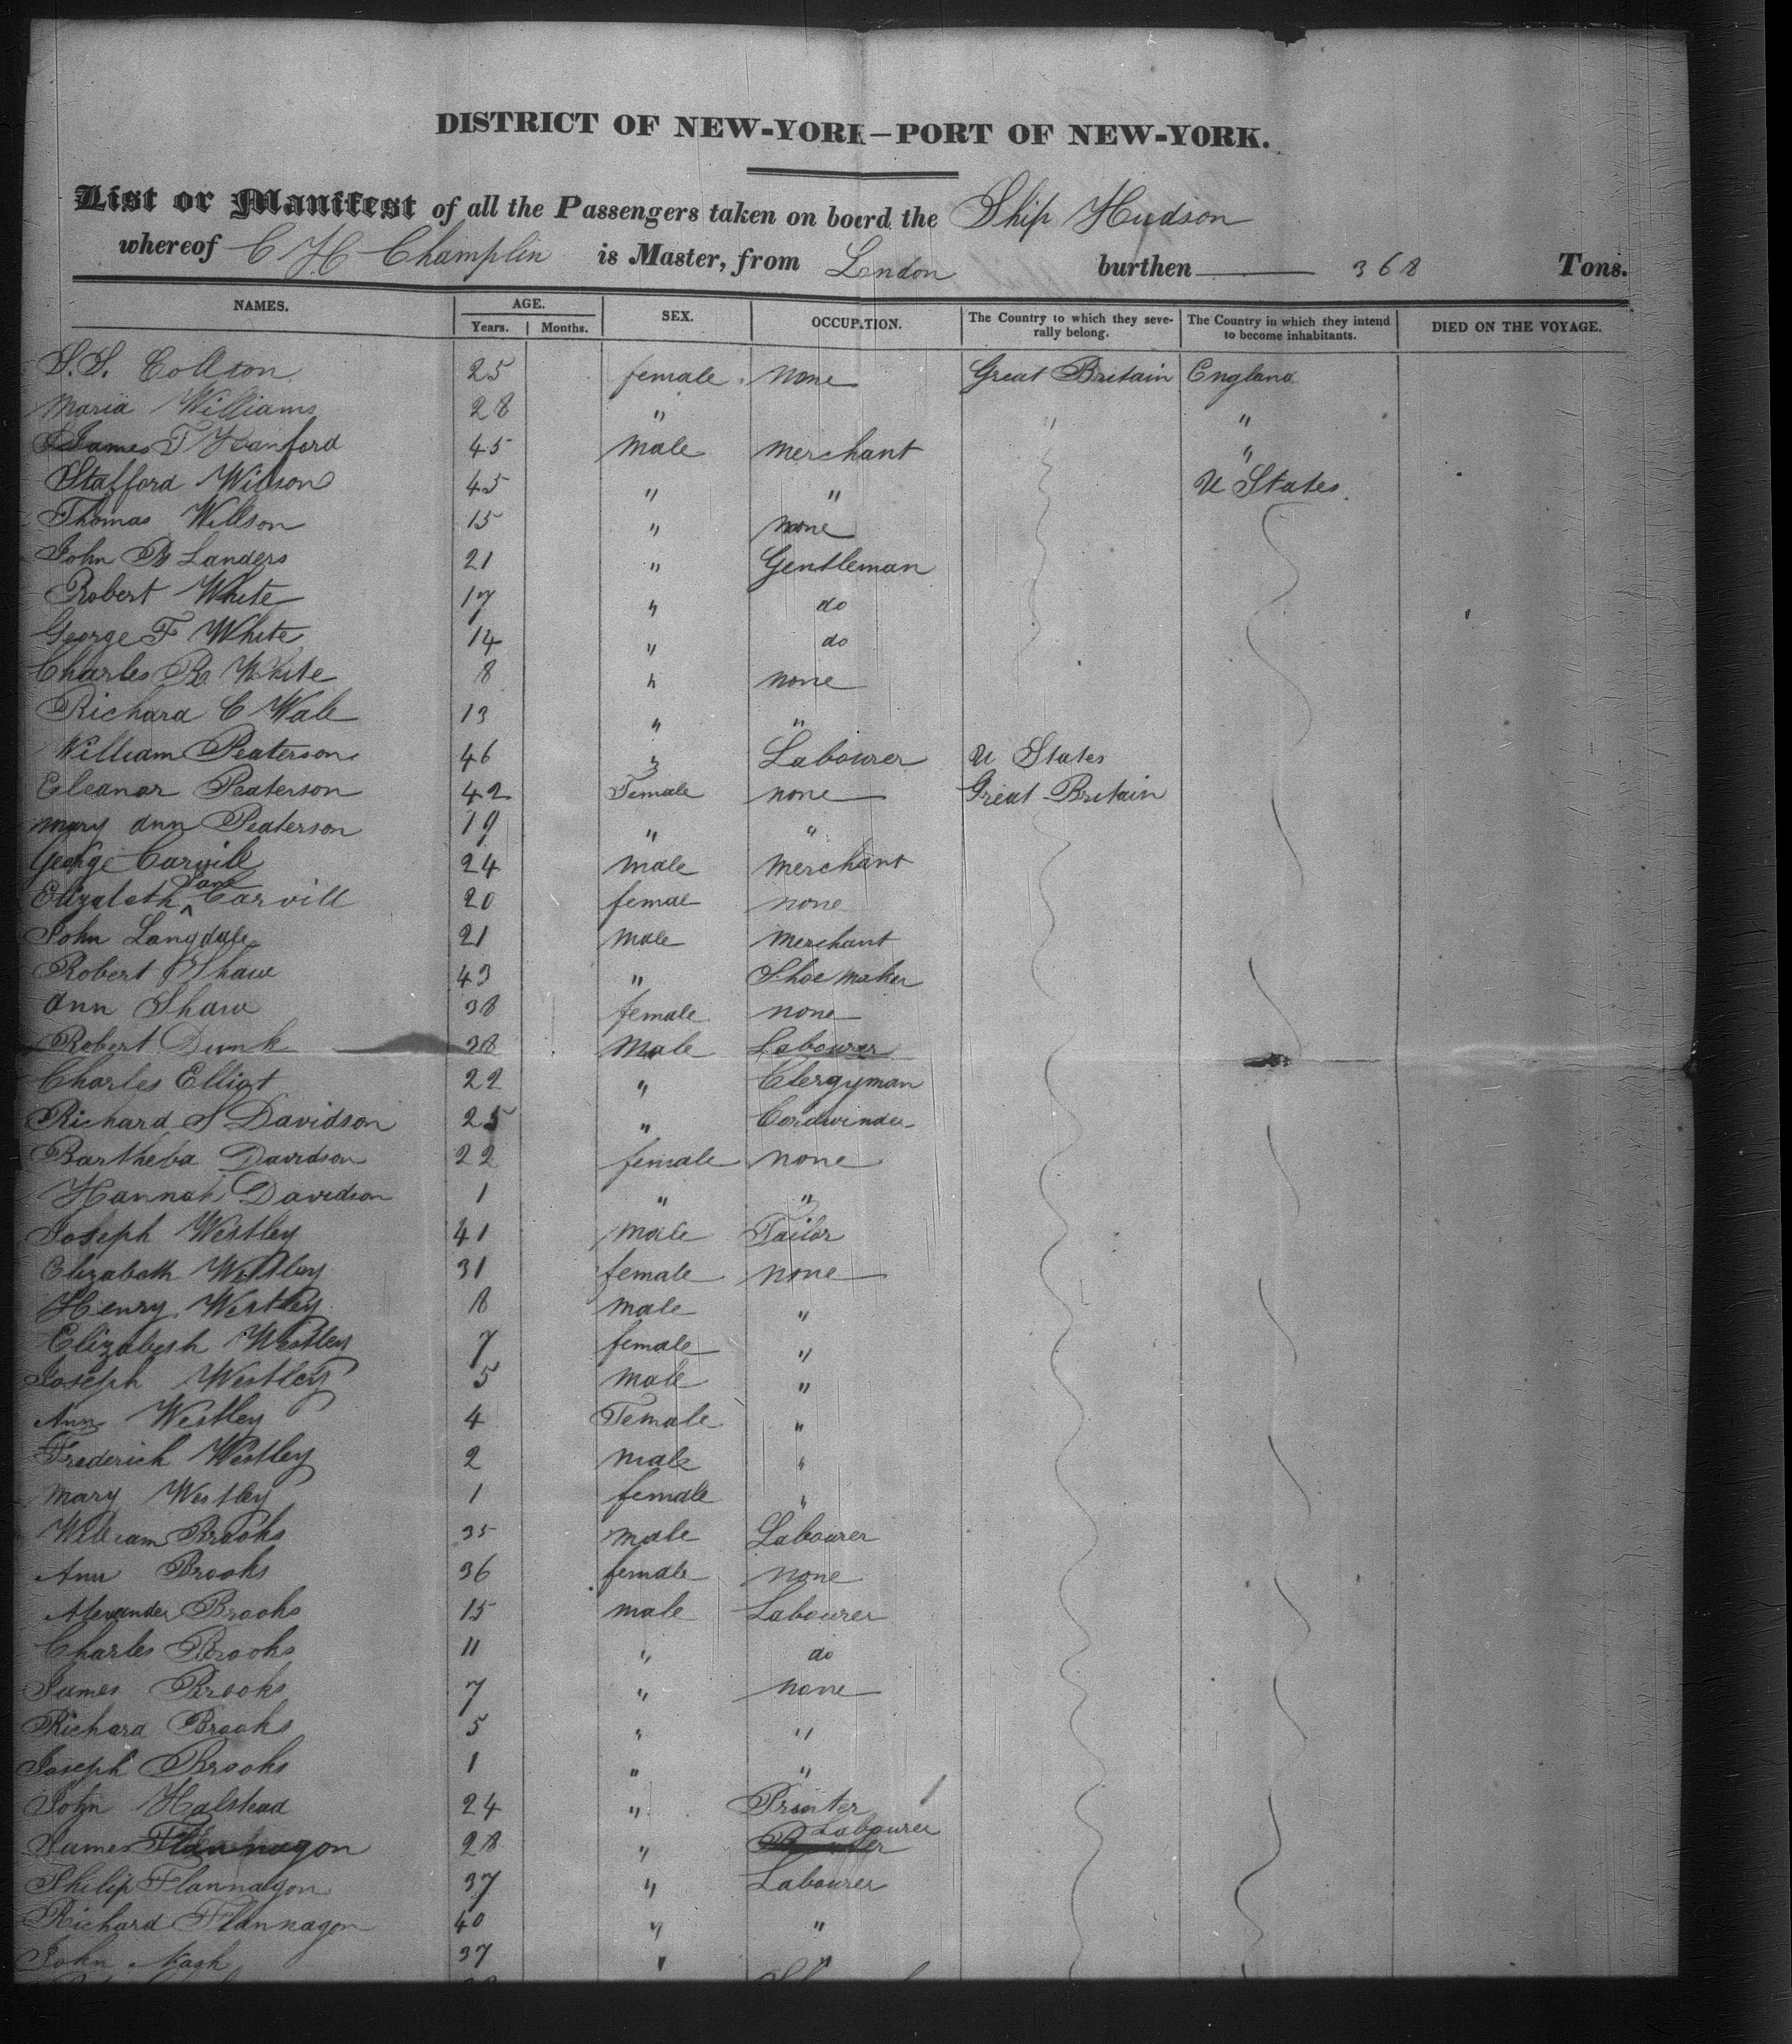 DISTRICT OF NEW-YORK—PORT OF NEW-YORK.
List or Manifest of all the Passengers taken on board the Ship Hudson
whereof C H Champlin is Master, from London burthen 368 Tons.
NAMES. AGE. SEX. OCCUPATION. The Country to which they seve- The Country in which they intend DIED ON THE VOYAGE.
Years. Months. rally belong. to become inhabitants.
S.S. Collton 25 female none Great Britain England
Maria Williams 28 " " "
James T Hanford 45 male merchant "
Stafford Wilson 45 " " U States
Thomas Willson 15 " none
John B Landers 21 " Gentleman
Robert White 17 " do
George F White 14 " do
Charles R White 8 " none
Richard C Wale 13 " "
William Peaterson 46 " Labourer U States
Eleanor Peaterson 42 Female none Great Britain
Mary Ann Peaterson 19 " "
George Carvill 24 male merchant
Elizabeth Jane Carvill 20 femae none
John Langdale 21 male merchant
Robert Shaw 43 " Shoe maker
Ann Shaw 38 female none
Robert Dunk 38 Male Labourer
Charles Elliot 22 " Clergyman
Richard S Davidson 25 " Cordwinder
Bartheba Davidson 22 female none
Hannah Davidson 1 " "
Joseph Westley 41 male Tailor
Elizabeth Westley 31 female none
Henry Westley 8 male "
Elizabeth Westley 7 female "
Joseph Westley 5 male "
Ann Westley 4 Female "
Frederich Westley 2 male "
Mary Westley 1 female "
William Brooks 35 male Labourer
Ann Brooks 36 female none
Alexander Brooks 15 male Labourer
Charles Brooks 11 " do
James Brooks 7 " none
Richard Brooks 5 " "
Joseph Brooks 1 " "
John Halstead 24 " Printer
James Flannagon 28 " Labourer
Philip Flannagon 37 " Labourer
Richard Flannagon 40 " "
John Nash 37 " "